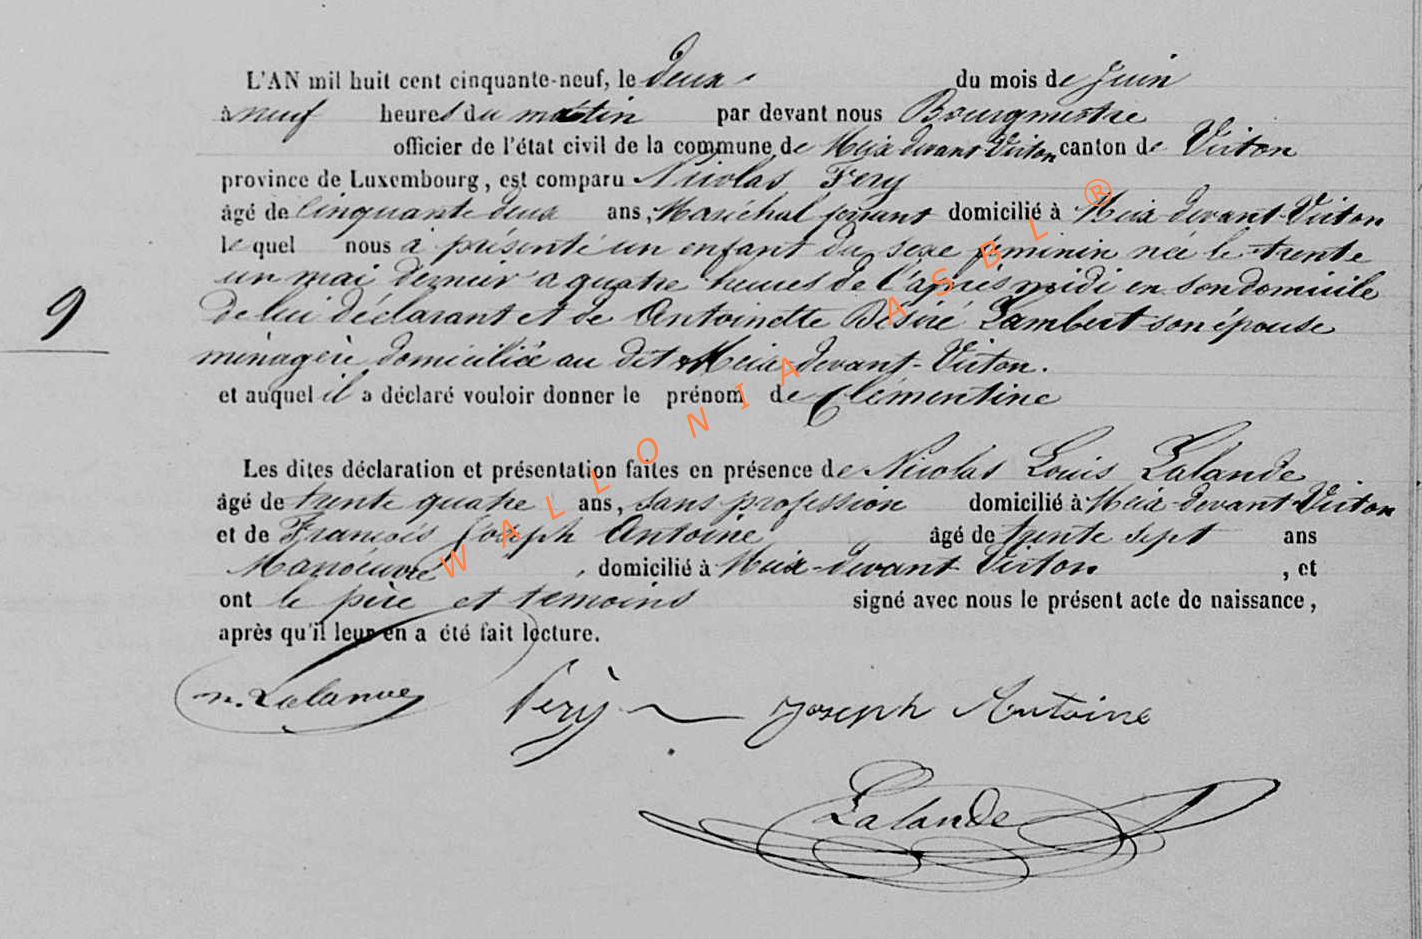 L'AN mil huit cent cinquante-neuf, le deux du mois de Juin
à neuf heures du matin par devant nous Bourgmestre
officier de l'état civil de la commune de Meix devant Virton canton de Virton
province de Luxembourg, est comparu Nicolas Fery
âgé de Cinquante deux ans, Maréchal ferrant domicilié à Meix-devant-Virton
le quel nous a présenté un enfant du sexe féminin née le trente
un mai dernier a quatre heures de l'après midi en son domicile
De lui déclarant et de Antoinette Désiré Lambert son épouse
ménagère domiciliée au dit Meix-devant-Virton.
9
et auquel il a déclaré vouloir donner le prénom de Clémentine
Les dites déclaration et présentation faites en présence de Nicolas Louis Lalande
âgé de trente quatre ans, sans profession domicilié à Meix-devant-Virton
et de François Joseph Antoine âgé de trente sept ans
Manoeuvre, domicilié à Meix-devant Virton, et
ont le père et temoins signé avec nous le présent acte de naissance,
après qu'il leur en a été fait lecture.
n. Lalande Féry Joseph Antoine
Lalande
WALLONIA ASBL ®